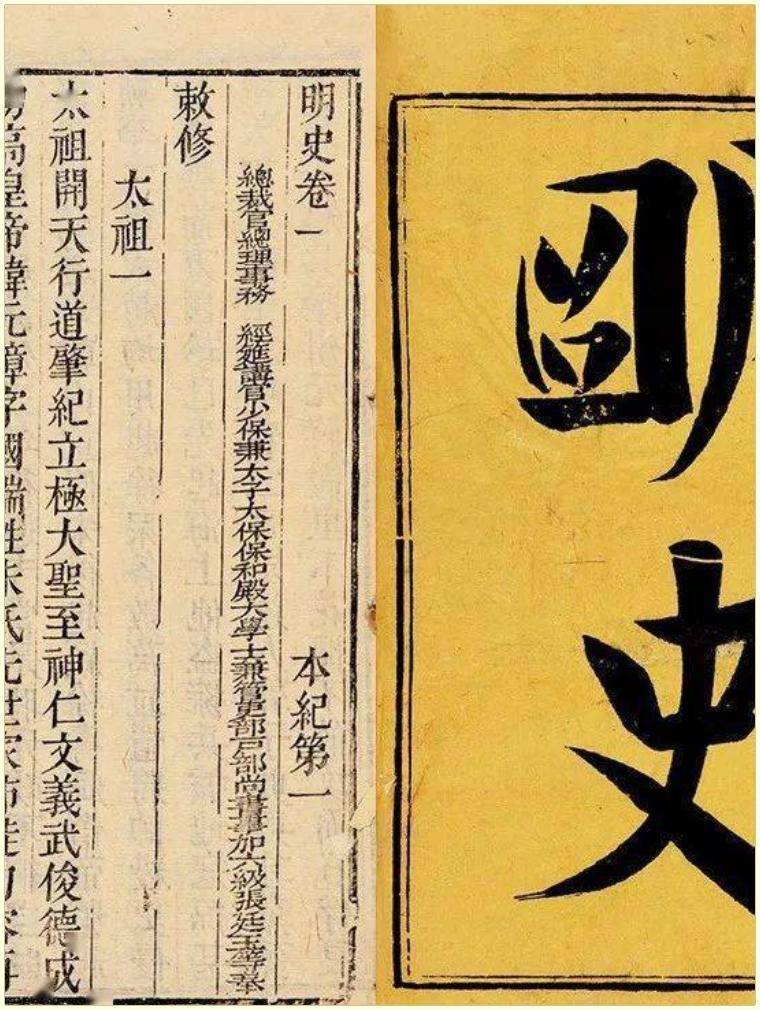 明史
明史卷一 本紀第一
總裁官總理事務 經筵講官少保兼太子太保保和殿大學士兼管吏部戶部尚書事加六級張廷玉等奉
敕修
太祖一
太祖開天行道肇紀立極大聖至神仁文義武俊德成
功高皇帝諱元璋字國瑞姓朱氏先世家沛徙句容再